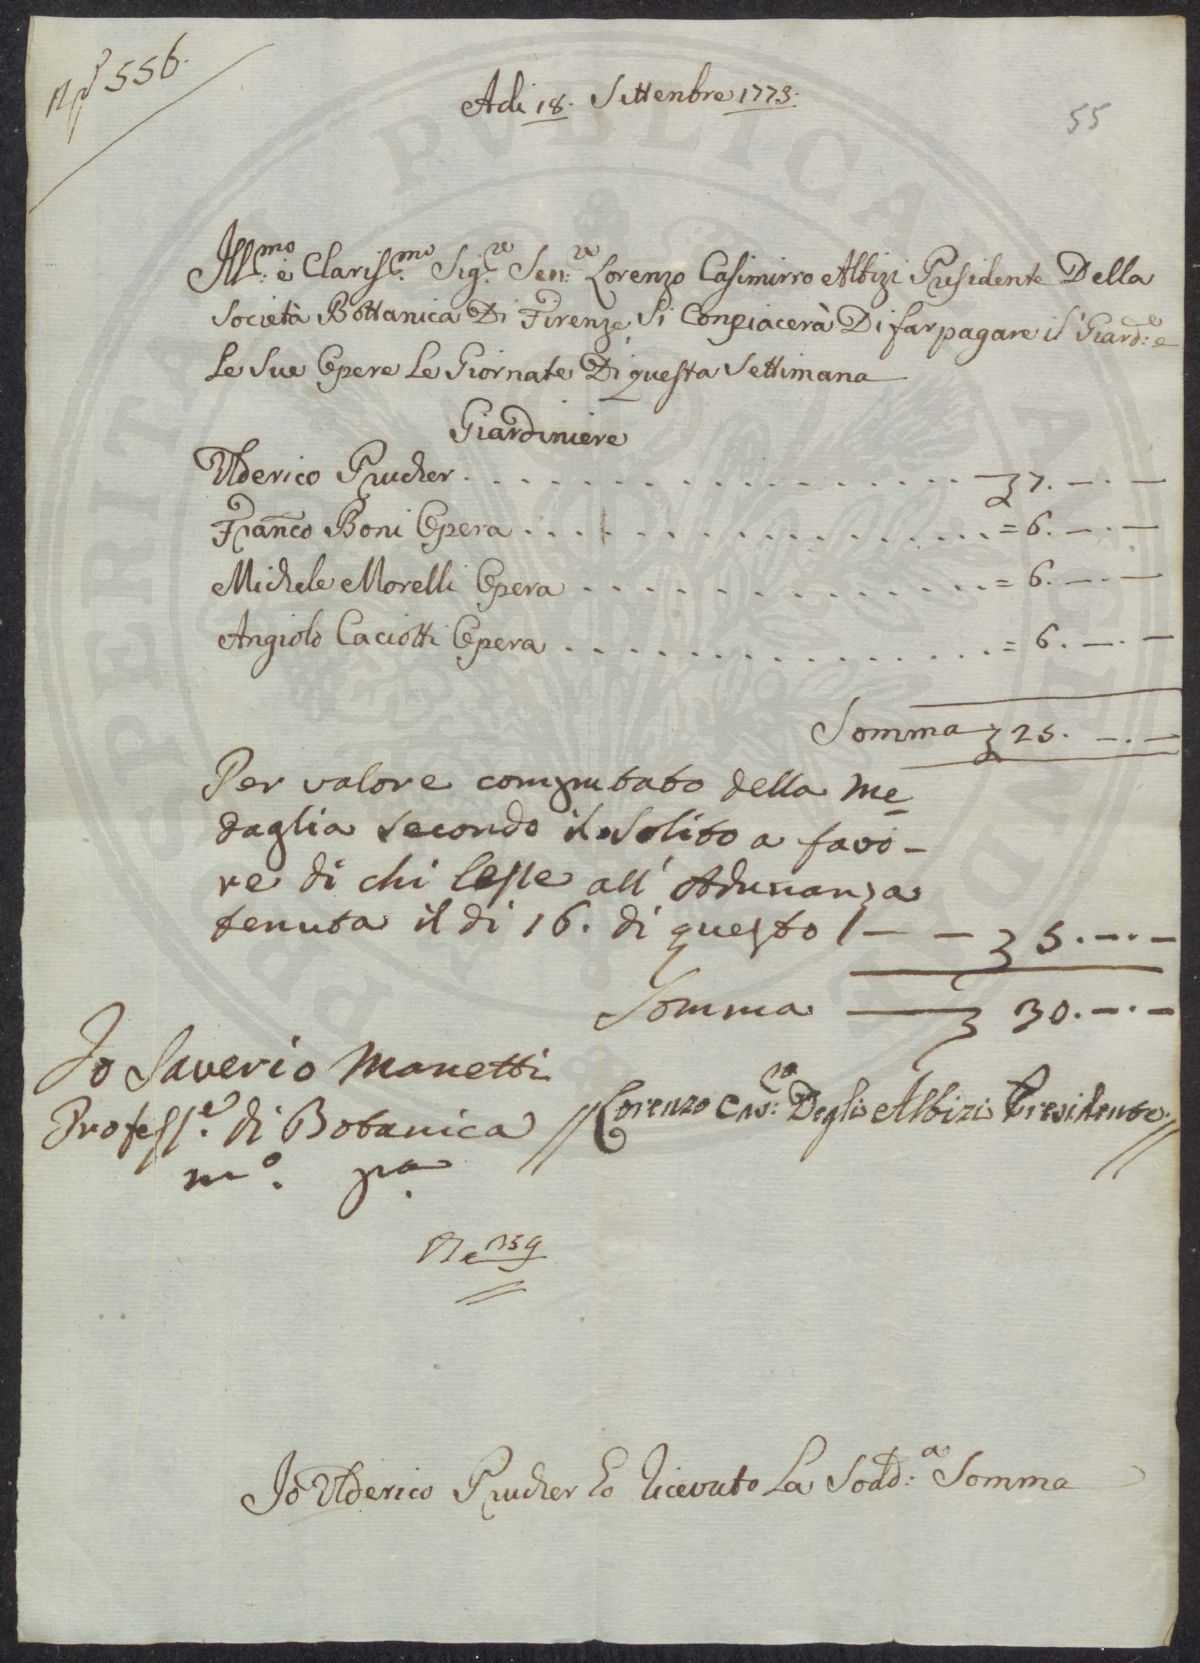 556.
Adi 18. Settenbre 1773.
55
Ill.mo e Clariss.mo Sig.re Sen.re Lorenzo Casimirro Albizi Presidente Della
Società Bottanica Di Firenze Si Conpiacerà Di far pagare il Giard.e e
Le Sue Opere Le Giornate Di questa Settimana
Giardiniere
Ulderico Prucher . . . . . . . . . . . . . . . . . . £ 7. — . —
Fran.co Boni Opera . . . . . . . . . . . . . . . . = 6. — . —
Michele Morelli Opera . . . . . . . . . . . . . . = 6. — . —
Angiolo Caciotti Opera . . . . . . . . . . . . . . = 6. — . —
Somma £ 25. — . —
Per valore computato della me
daglia secondo il solito a favo-
re di chi lesse all' Adunanza
tenuta il di 16. di questo / — — £ 5. — . —
Somma — £ 30. — . —
Io Saverio Manetti
Profess.e di Botanica
m.o p.a
// Lorenzo Cas.ro Degli Albizi Presidente //
359
Io Ulderico Prucher ho ricevuto La Sodd.a Somma
PERITIA PVBLICAE